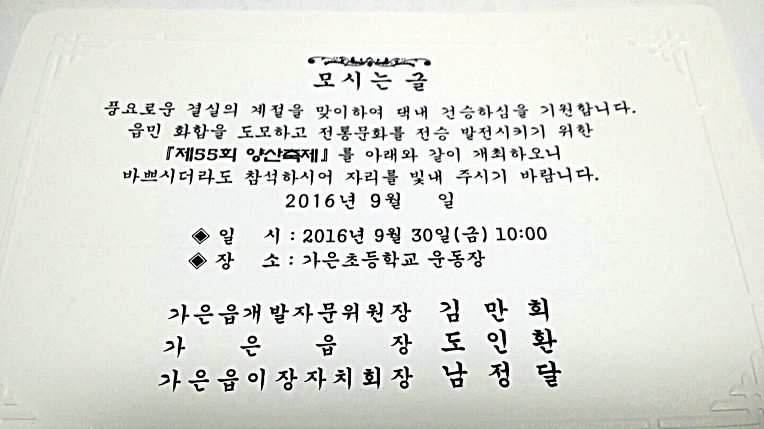 모시는 글
풍요로운 결실의 계절을 맞이하여 댁내 건승하심을 기원합니다.
읍민 화합을 도모하고 전통문화를 전승 발전시키기 위한
『제55회 양산축제』를 아래와 같이 개최하오니
바쁘시더라도 참석하시어 자리를 빛내 주시기 바랍니다.
2016년 9월 일
◈ 일 시 : 2016년 9월 30일(금) 10:00
◈ 장 소 : 가은초등학교 운동장
가은읍개발자문위원장 김 만 희
가 은 읍 장 도 인 환
가은읍이장자치회장 남 정 달